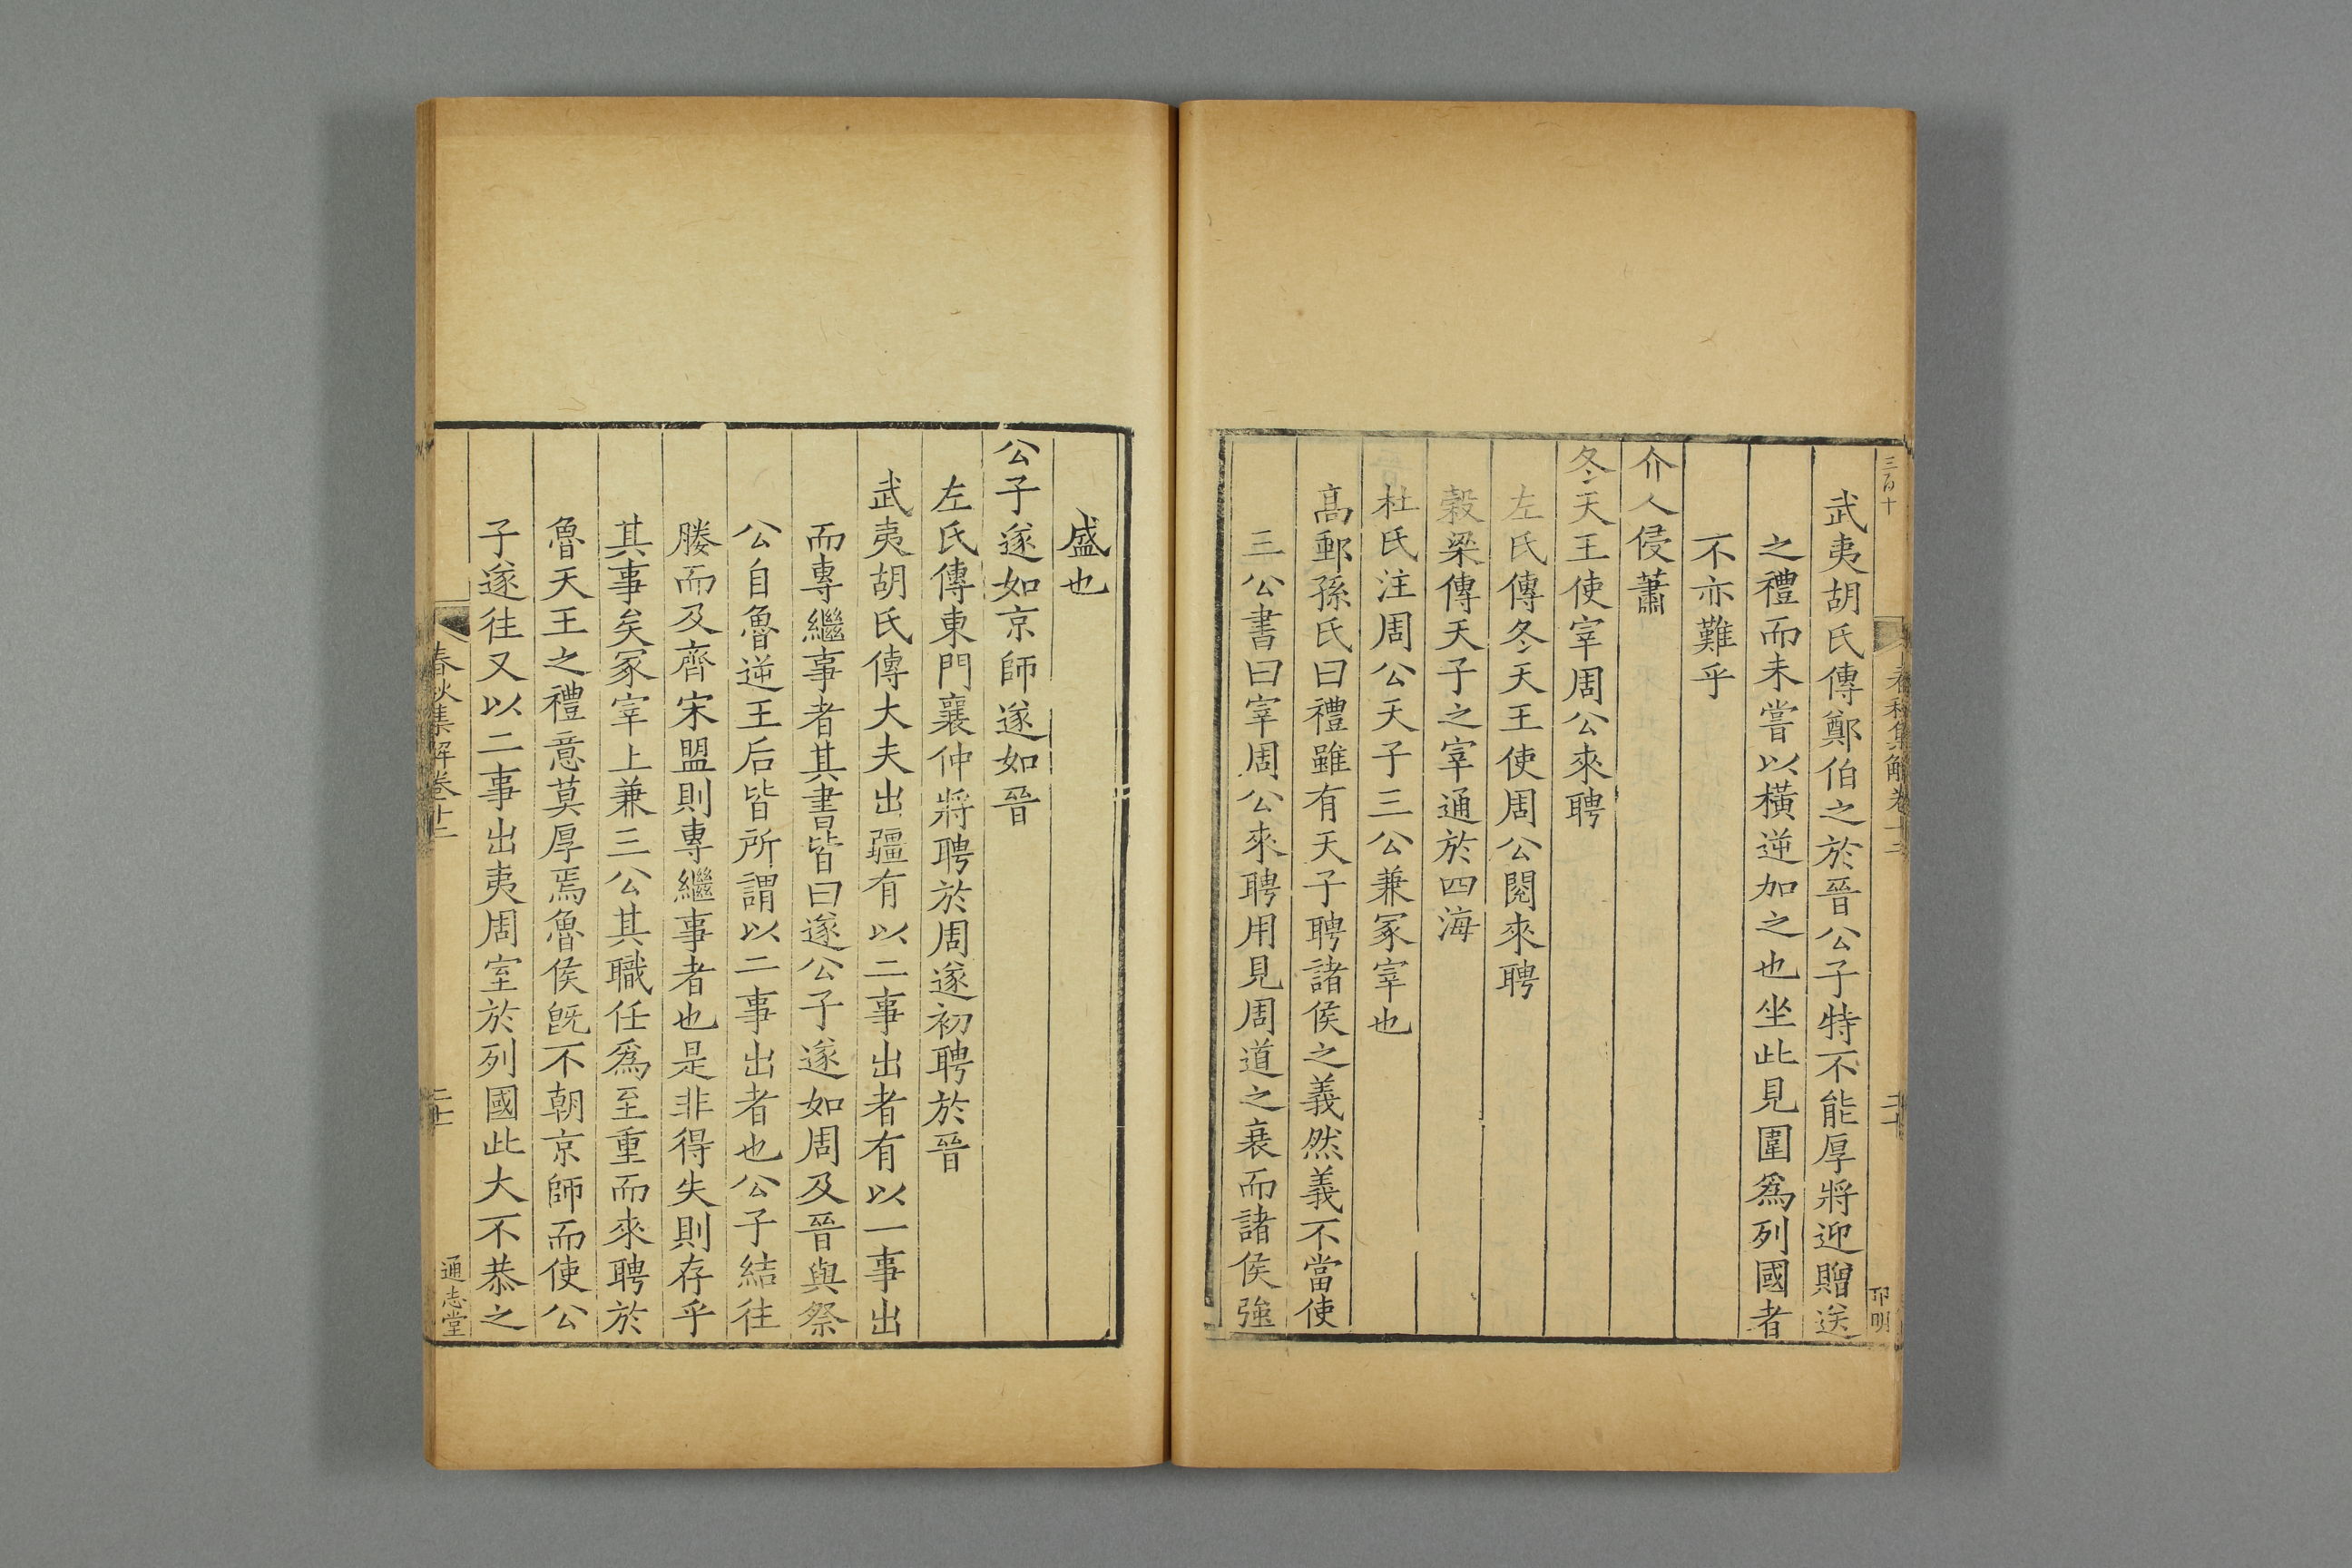 三百十
春秋集解卷十二
二十
卬明
武夷胡氏傳鄭伯之於晉公子特不能厚將迎贈送
之禮而未嘗以橫逆加之也坐此見圍爲列國者
不亦難乎
介人侵蕭
冬天王使宰周公來聘
左氏傳冬天王使周公閱來聘
穀梁傳天子之宰通於四海
杜氏注周公天子三公兼冢宰也
高郵孫氏曰禮雖有天子聘諸侯之義然義不當使
三公書曰宰周公來聘用見周道之衰而諸侯強
盛也
公子遂如京師遂如晉
左氏傳東門襄仲將聘於周遂初聘於晉
武夷胡氏傳大夫出疆有以二事出者有以一事出
而專繼事者其書皆曰遂公子遂如周及晉與祭
公自魯逆王后皆所謂以二事出者也公子結往
媵而及齊宋盟則專繼事者也是非得失則存乎
其事矣冢宰上兼三公其職任爲至重而來聘於
魯天王之禮意莫厚焉魯侯旣不朝京師而使公
子遂往又以二事出夷周室於列國此大不恭之
春秋集解卷十二
二十一
通志堂